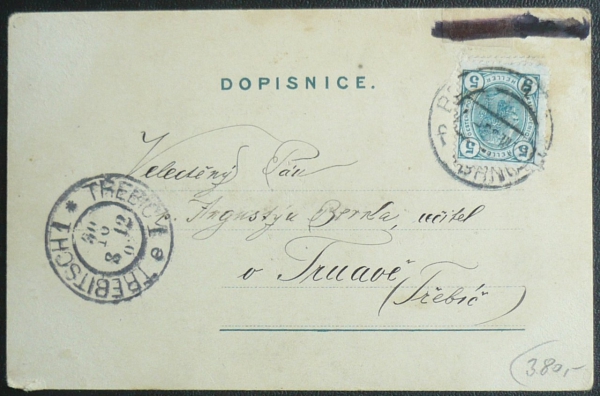 DOPISNICE.
5 HELLER 5
5 5
BRNO
Velectěný Pán
Augustýn Berka, učitel
v Trnavě
(Třebíč)
TŘEBÍČ 1 a
TREBITSCH 1
30 10 12
380,-